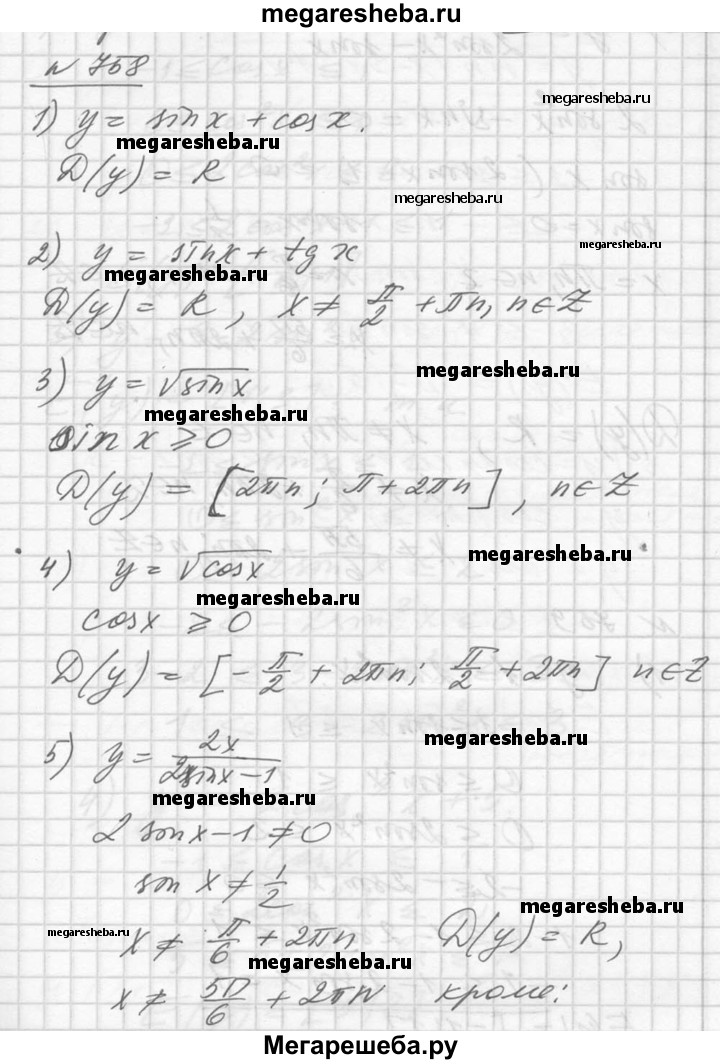 megaresheba.ru
n 758
megaresheba.ru
1) y = sin x + cos x.
megaresheba.ru
D(y) = R
megaresheba.ru
2) y = sin x + tg x
megaresheba.ru
megaresheba.ru
D(y) = R, x ≠ π/2 + πn, n ∈ Z
3) y = √sin x
megaresheba.ru
megaresheba.ru
sin x ⩾ 0
D(y) = [2πn; π + 2πn], n ∈ Z
megaresheba.ru
4) y = √cos x
megaresheba.ru
cos x ⩾ 0
D(y) = [-π/2 + 2πn; π/2 + 2πn] n ∈ Z
megaresheba.ru
5) y = 2x/(2 sin x - 1)
megaresheba.ru
2 sin x - 1 ≠ 0
sin x ≠ 1/2
megaresheba.ru
megaresheba.ru
x ≠ π/6 + 2πn D(y) = R,
megaresheba.ru
x ≠ 5π/6 + 2πn кроме:
Мегарешеба.ру